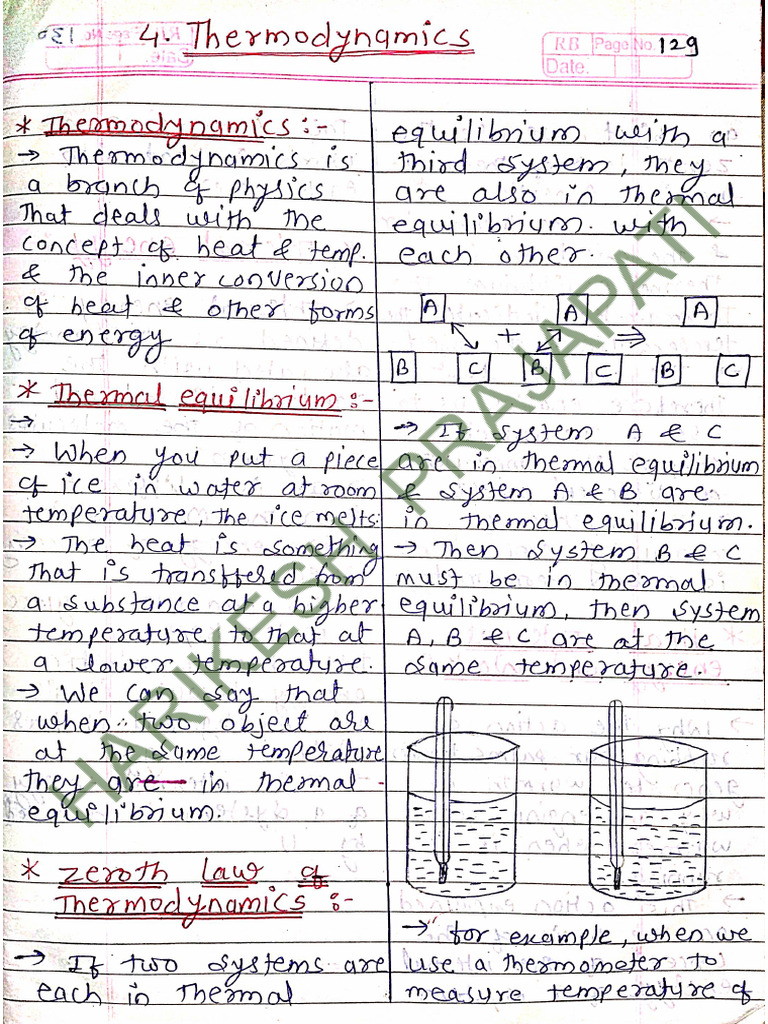 4. Thermodynamics
RB Page No. 129
Date.
* Thermodynamics :-
→ Thermodynamics is
a branch of physics
That deals with the
concept of heat & temp.
& the inner conversion
of heat & other forms
of energy
* Thermal equilibrium :-
→
→ When you put a piece
of ice in water at room
temperature, the ice melts.
→ The heat is something
That is transffered from
a substance at a higher
temperature to that at
a lower temperature.
→ We can say that
when two object are
at the same temperature
they are in thermal
equilibrium.
* zeroth law of
Thermodynamics :-
→ If two systems are
each in Thermal
equilibrium with a
third system, they
are also in thermal
equilibrium. with
each other.
A A A
+ ⇒
B C B C B C
→ If system A & C
are in thermal equilibrium
& system A & B are
in thermal equilibrium.
→ Then system B & C
must be in thermal
equilibrium, then system
A, B & C are at the
same temperature.
→ for example, when we
use a thermometer to
measure temperature of
HARIKESH PRAJAPATI